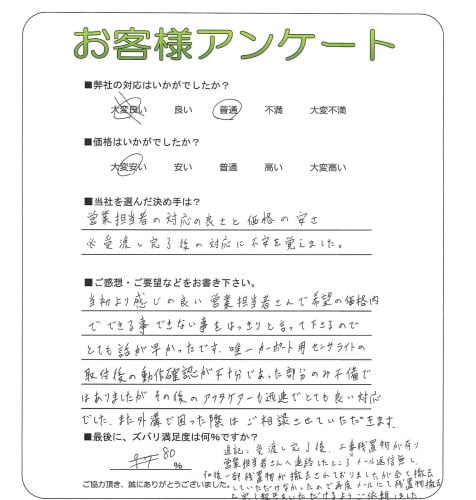 お客様アンケート
■弊社の対応はいかがでしたか?
大変良い 良い 普通 不満 大変不満
■価格はいかがでしたか?
大変安い 安い 普通 高い 大変高い
■当社を選んだ決め手は?
営業担当者の対応の良さと価格の安さ
※受渡し完了後の対応に不安を覚えました。
■ご感想・ご要望などをお書き下さい。
当初より感じの良い営業担当者さんで希望の価格内
でできる事できない事をはっきりと言って下さるので
とても話が早かったです。唯一カーポート用センサライトの
取付後の動作確認が不十分であった部分のみ不備で
はありましたがその後のアフタケアーも迅速でとても良い対応
でした。また外溝で困った際はご相談させていただきます。
■最後に、ズバリ満足度は何%ですか?
80
%
追記:受渡し完了後、工事残置物が有り
営業担当者さんへ連絡したところメール返信無し、
その後一部残置物が撤去されておりましたが全て撤去
していただけなかったので再度メールにて残置物撤去
ご協力頂き、誠にありがとうございました。